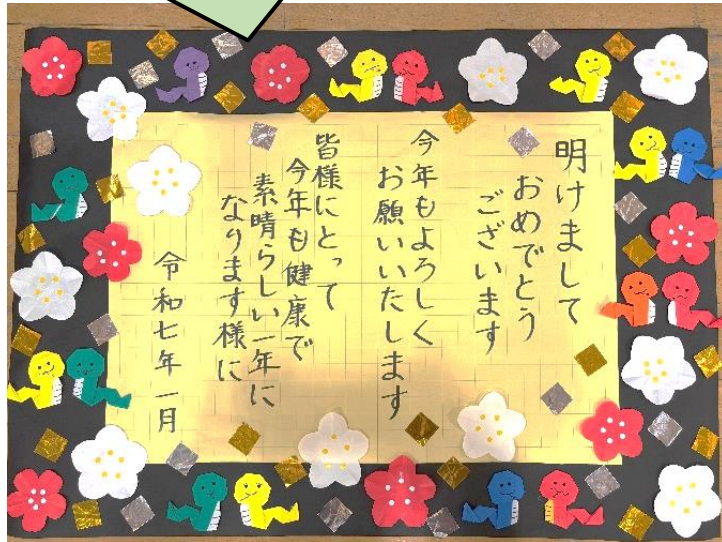 明けまして
おめでとう
ございます
今年もよろしく
お願いいたします
皆様にとって
今年も健康で
素晴らしい一年に
なります様に
令和七年一月